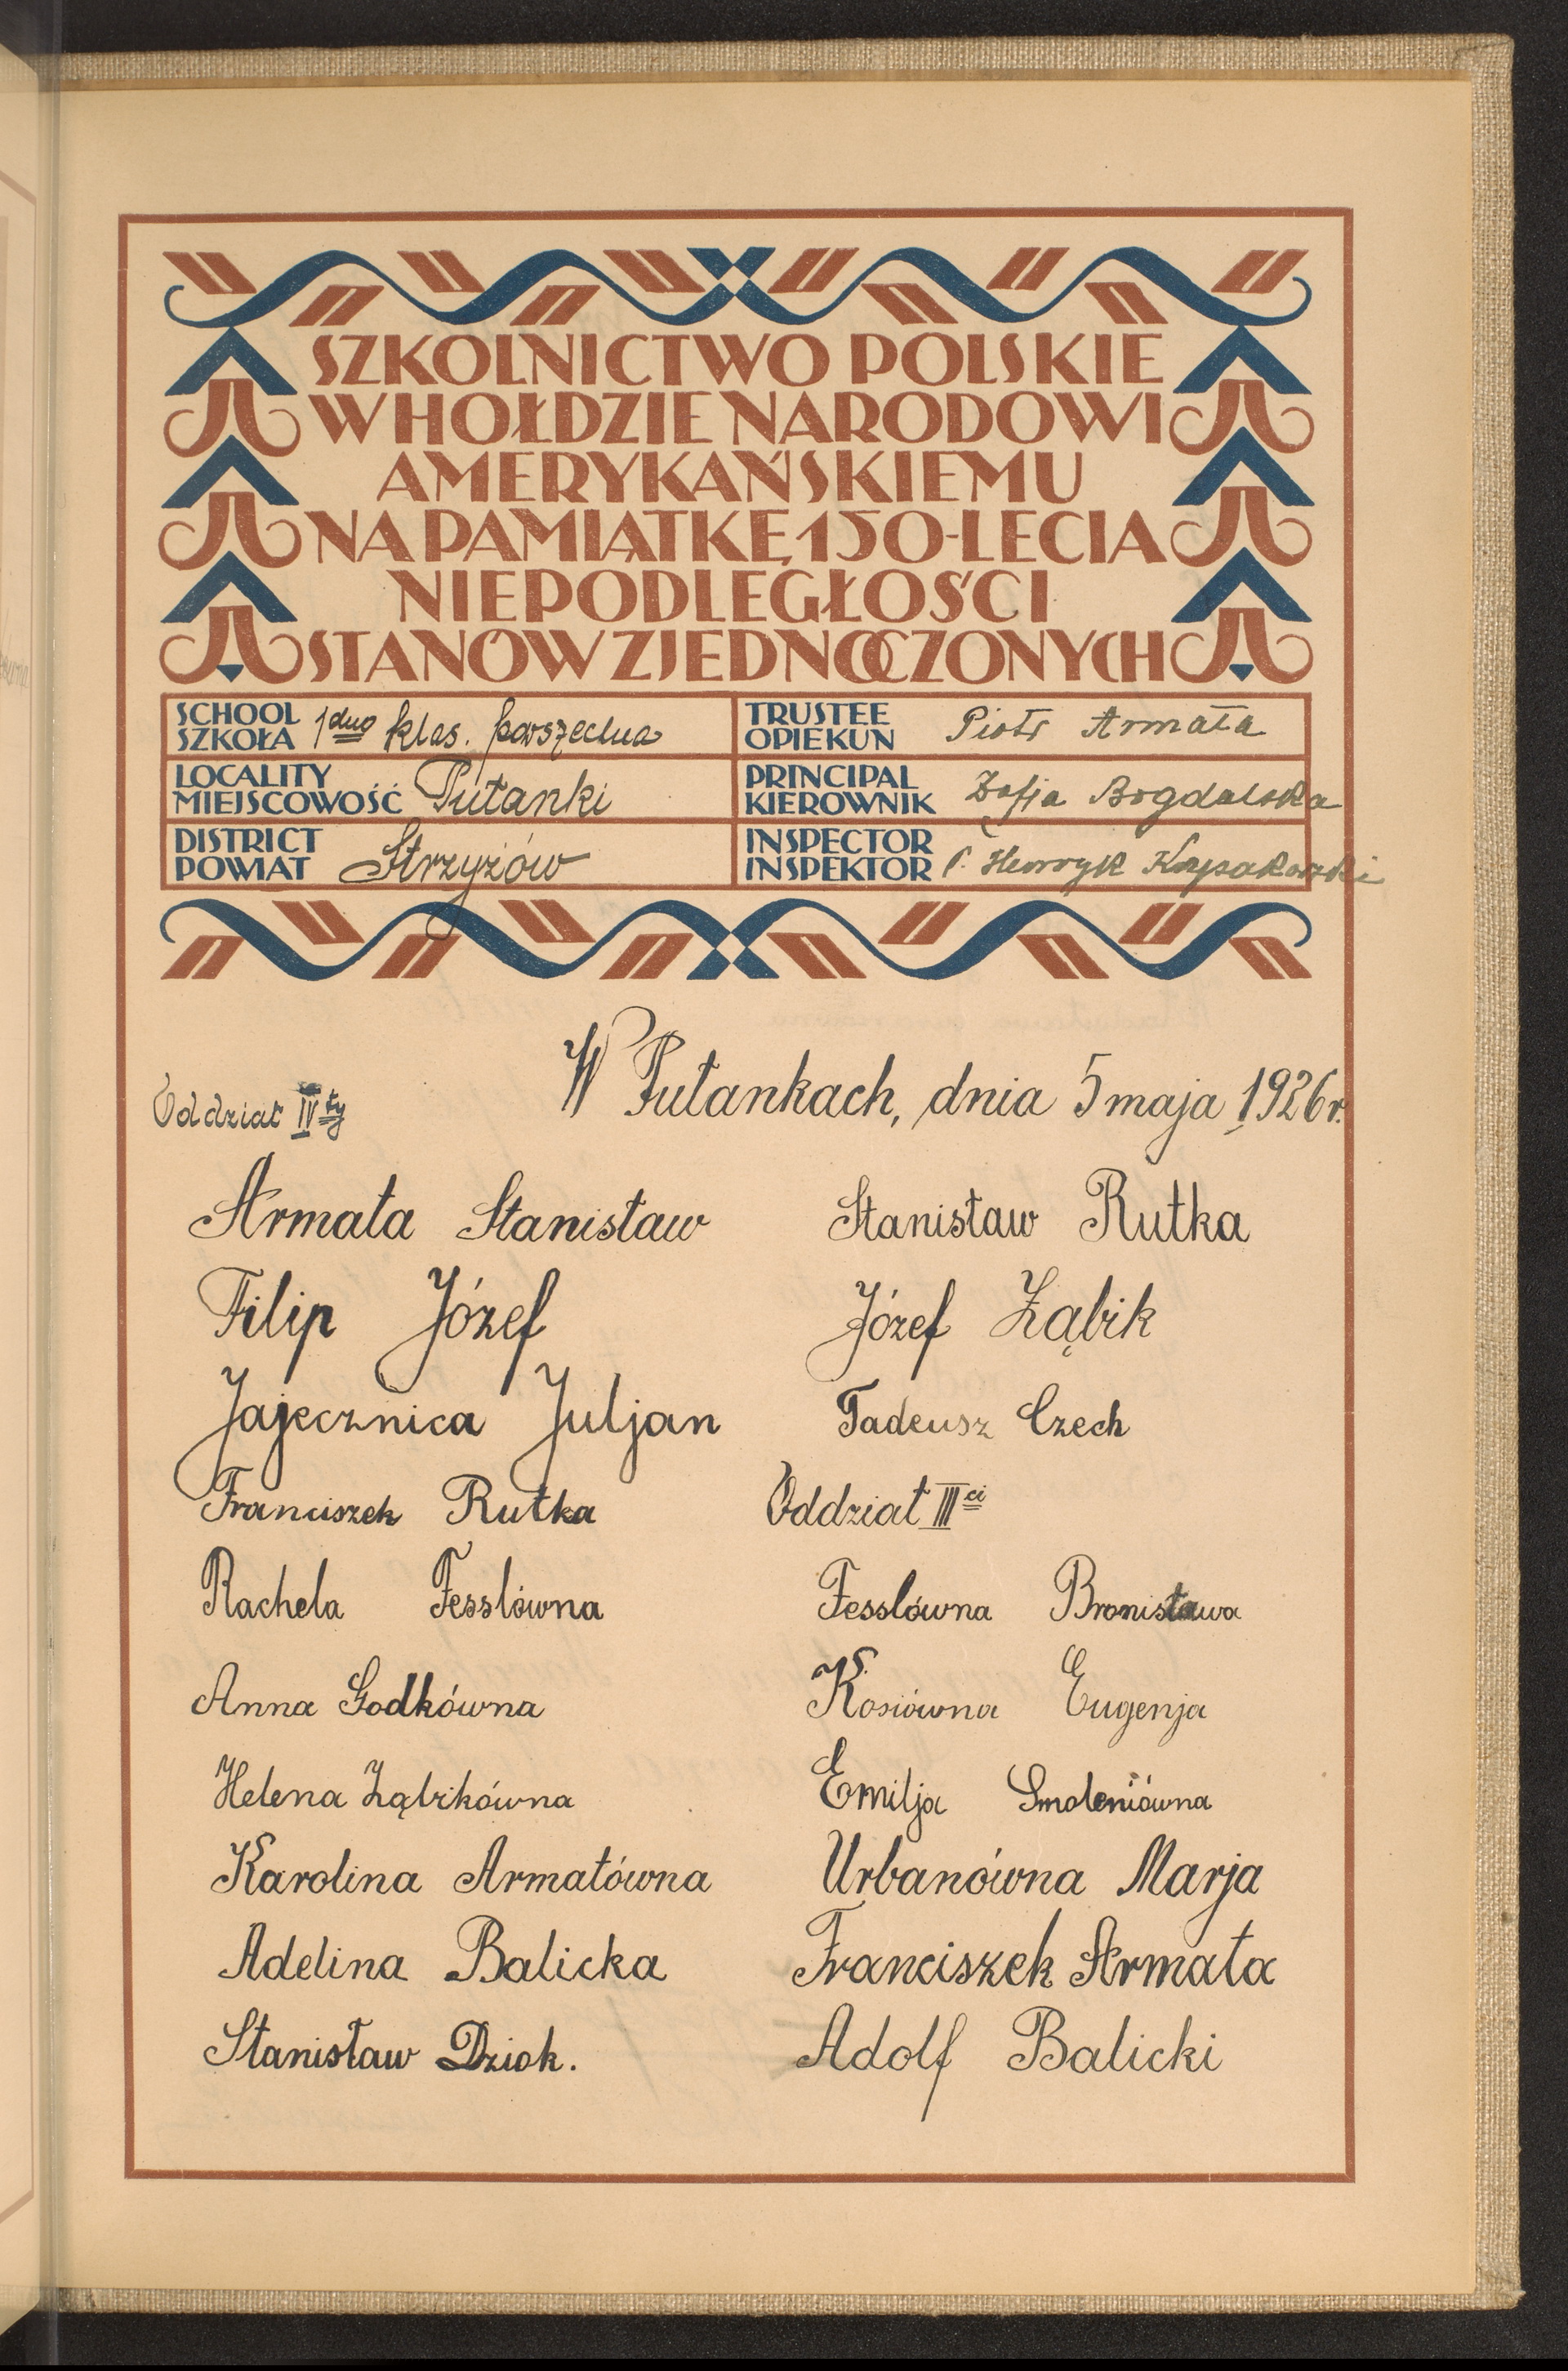 SZKOLNICTWO POLSKIE
W HOŁDZIE NARODOWI
AMERYKAŃSKIEMU
NA PAMIĄTKĘ 150-LECIA
NIEPODLEGŁOŚCI
STANÓW ZJEDNOCZONYCH
SCHOOL
SZKOŁA 1dno klas. powszechna
TRUSTEE
OPIEKUN Piotr Armata
LOCALITY
MIEJSCOWOŚĆ Pułanki
PRINCIPAL
KIEROWNIK Zofja Bogdalska
DISTRICT
POWIAT Strzyżów
INSPECTOR
INSPEKTOR P. Henryk
W Pułankach, dnia 5 maja 1926 r.
Oddział IVty
Armata Stanisław
Filip Józef
Jajecznica Juljan
Franciszek Rutka
Rachela Fesslówna
Anna Godkówna
Helena Ząbikówna
Karolina Armatówna
Adelina Balicka
Stanisław Dziok.
Stanisław Rutka
Józef Ząbik
Tadeusz Czech
Oddział IIIci
Fesslówna Bronisława
Kosiówna Eugenja
Emilja Smoleniówna
Urbanówna Marja
Franciszek Armata
Adolf Balicki